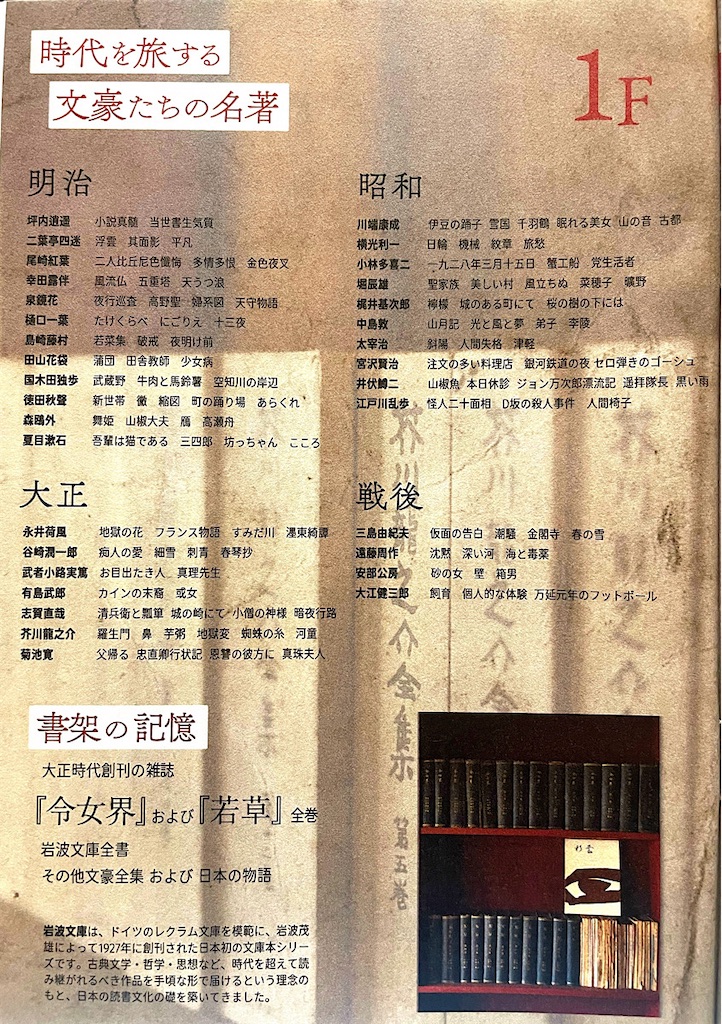 時代を旅する
文豪たちの名著
1F
明治
坪内逍遥 小説真髄 当世書生気質
二葉亭四迷 浮雲 其面影 平凡
尾崎紅葉 二人比丘尼色懺悔 多情多恨 金色夜叉
幸田露伴 風流仏 五重塔 天うつ浪
泉鏡花 夜行巡査 高野聖 婦系図 天守物語
樋口一葉 たけくらべ にごりえ 十三夜
島崎藤村 若菜集 破戒 夜明け前
田山花袋 蒲団 田舎教師 少女病
国木田独歩 武蔵野 牛肉と馬鈴薯 空知川の岸辺
徳田秋聲 新世帯 黴 縮図 町の踊り場 あらくれ
森鴎外 舞姫 山椒大夫 雁 高瀬舟
夏目漱石 吾輩は猫である 三四郎 坊っちゃん こころ
大正
永井荷風 地獄の花 フランス物語 すみだ川 濹東綺譚
谷崎潤一郎 痴人の愛 細雪 刺青 春琴抄
武者小路実篤 お目出たき人 真理先生
有島武郎 カインの末裔 或女
志賀直哉 清兵衛と瓢箪 城の崎にて 小僧の神様 暗夜行路
芥川龍之介 羅生門 鼻 芋粥 地獄変 蜘蛛の糸 河童
菊池寛 父帰る 忠直卿行状記 恩讐の彼方に 真珠夫人
昭和
川端康成 伊豆の踊子 雪国 千羽鶴 眠れる美女 山の音 古都
横光利一 日輪 機械 紋章 旅愁
小林多喜二 一九二八年三月十五日 蟹工船 党生活者
堀辰雄 聖家族 美しい村 風立ちぬ 菜穂子 曠野
梶井基次郎 檸檬 城のある町にて 桜の樹の下には
中島敦 山月記 光と風と夢 弟子 李陵
太宰治 斜陽 人間失格 津軽
宮沢賢治 注文の多い料理店 銀河鉄道の夜 セロ弾きのゴーシュ
井伏鱒二 山椒魚 本日休診 ジョン万次郎漂流記 遥拝隊長 黒い雨
江戸川乱歩 怪人二十面相 D坂の殺人事件 人間椅子
戦後
三島由紀夫 仮面の告白 潮騒 金閣寺 春の雪
遠藤周作 沈黙 深い河 海と毒薬
安部公房 砂の女 壁 箱男
大江健三郎 飼育 個人的な体験 万延元年のフットボール
芥川龍之介全集 第五巻
書架の記憶
大正時代創刊の雑誌
『令女界』および『若草』全巻
岩波文庫全書
その他文豪全集 および 日本の物語
岩波文庫は、ドイツのレクラム文庫を模範に、岩波茂
雄によって1927年に創刊された日本初の文庫本シリー
ズです。古典文学・哲学・思想など、時代を超えて読
み継がれるべき作品を手頃な形で届けるという理念の
もと、日本の読書文化の礎を築いてきました。